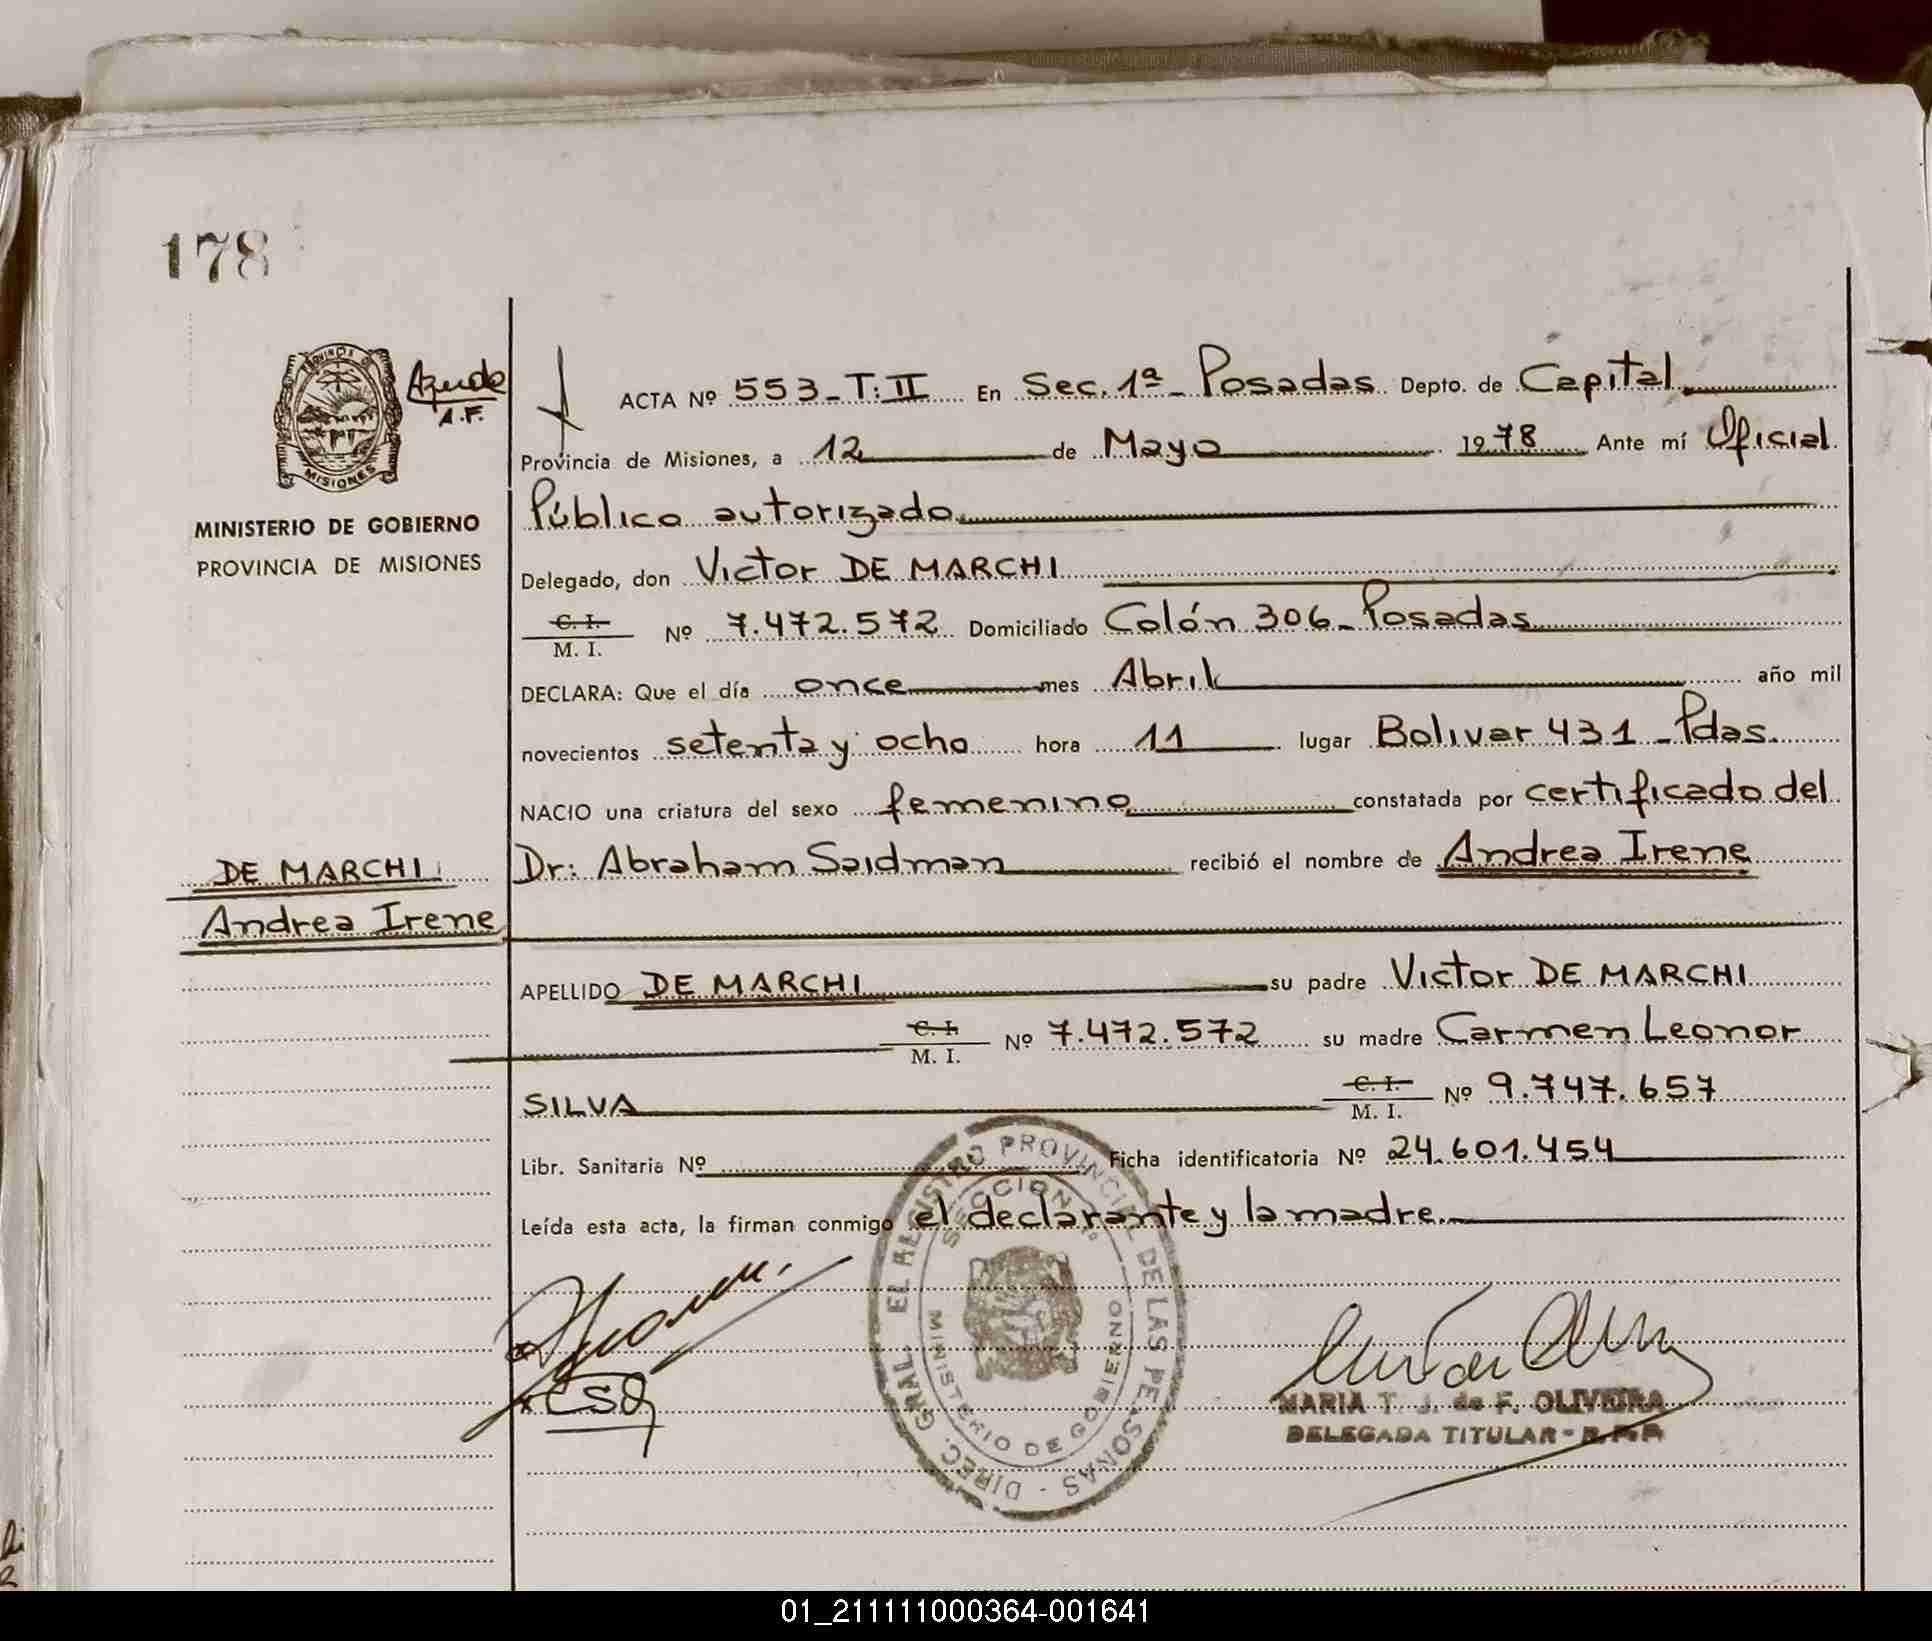 178
PROVINCIA DE
MISIONES
Agudo
A.F.
MINISTERIO DE GOBIERNO
PROVINCIA DE MISIONES
ACTA Nº 553_T:II En Sec. 1ª_Posadas Depto. de Capital
Provincia de Misiones, a 12 de Mayo 1978 Ante mí Oficial
Público autorizado
Delegado, don Victor DE MARCHI
C. I.
M. I. Nº 7.472.572 Domiciliado Colón 306_Posadas
DECLARA: Que el día once mes Abril año mil
novecientos setenta y ocho hora 11 lugar Bolivar 431_Pdas.
NACIO una criatura del sexo femenino constatada por certificado del
Dr: Abraham Saidman recibió el nombre de Andrea Irene
DE MARCHI
Andrea Irene
APELLIDO DE MARCHI su padre Victor DE MARCHI
C. I.
M. I. Nº 7.472.572 su madre Carmen Leonor
SILVA C. I.
M. I. Nº 9.747.657
Libr. Sanitaria Nº Ficha identificatoria Nº 24.601.454
Leída esta acta, la firman conmigo el declarante y la madre.
DIREC. GRAL. EL REGISTRO PROVINCIAL DE LAS PERSONAS
SECCION 1º
MINISTERIO DE GOBIERNO
MARIA T. J. de F. OLIVEIRA
DELEGADA TITULAR - R.P.P
01_211111000364-001641